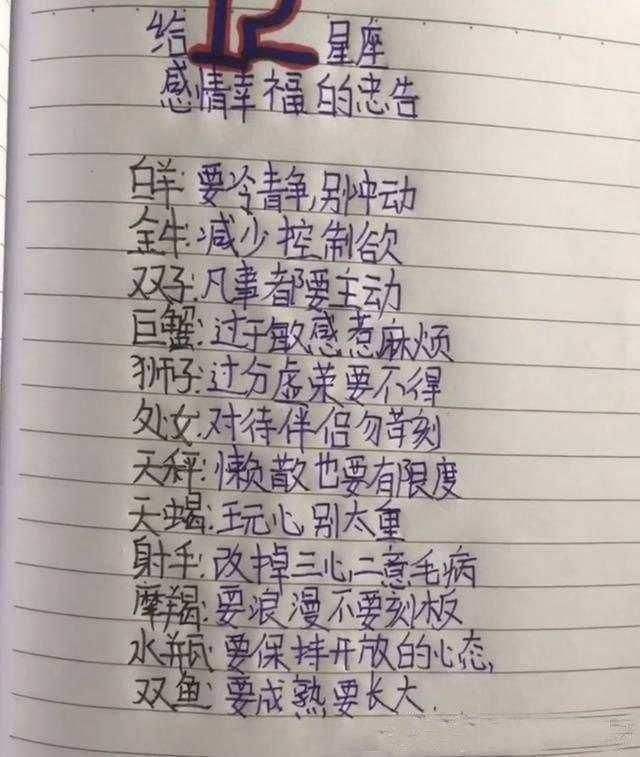 给12星座
感情幸福的忠告
白羊:要冷静,别冲动
金牛:减少控制欲
双子:凡事都要主动
巨蟹:过于敏感惹麻烦
狮子:过分虚荣要不得
处女:对待伴侣勿苛刻
天秤:懒散也要有限度
天蝎:玩心别太重
射手:改掉三心二意毛病
摩羯:要浪漫不要刻板
水瓶:要保持开放的心态,
双鱼:要成熟要长大.